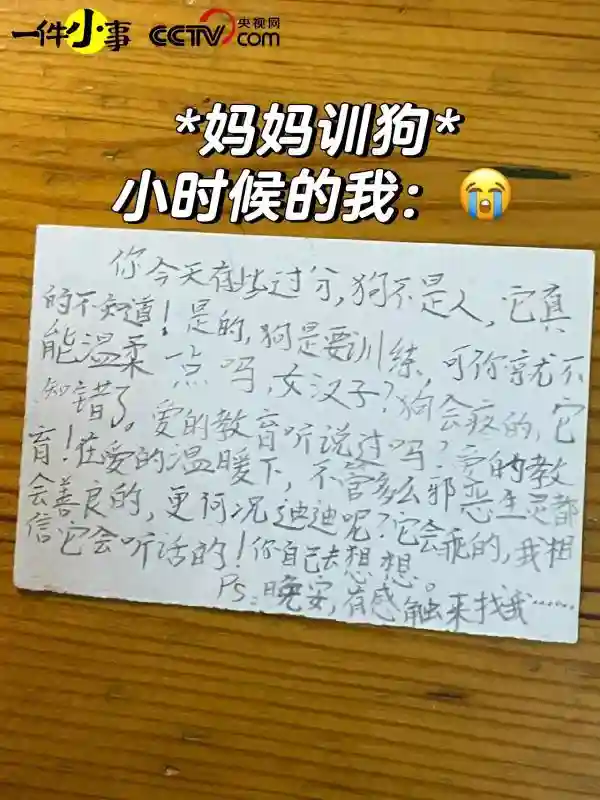 一件小事 CCTV.com 央视网
*妈妈训狗*
小时候的我：😭
你今天有些过分，狗不是人，它真
的不知道！是的，狗是要训练，可你就不
能温柔一点吗，女汉子？狗会疼的，它
知错了。爱的教育听说过吗？爱的教
育！在爱的温暖下，不管多么邪恶生灵都
会善良的，更何况迪迪呢？它会乖的，我相
信它会听话的！你自己去想想。
Ps：晚安，有感触来找我……